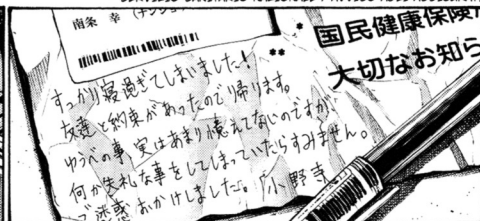 南条 幸 (ナンジョ
国民健康保険
大切なお知ら
すっかり寝過ぎてしまいました!
友達と約束があったので帰ります。
ゆうべの事、実はあまり憶えてないのですが、
何か失礼な事をしてしまっていたらすみません。
ご迷惑おかけしました。 小野寺